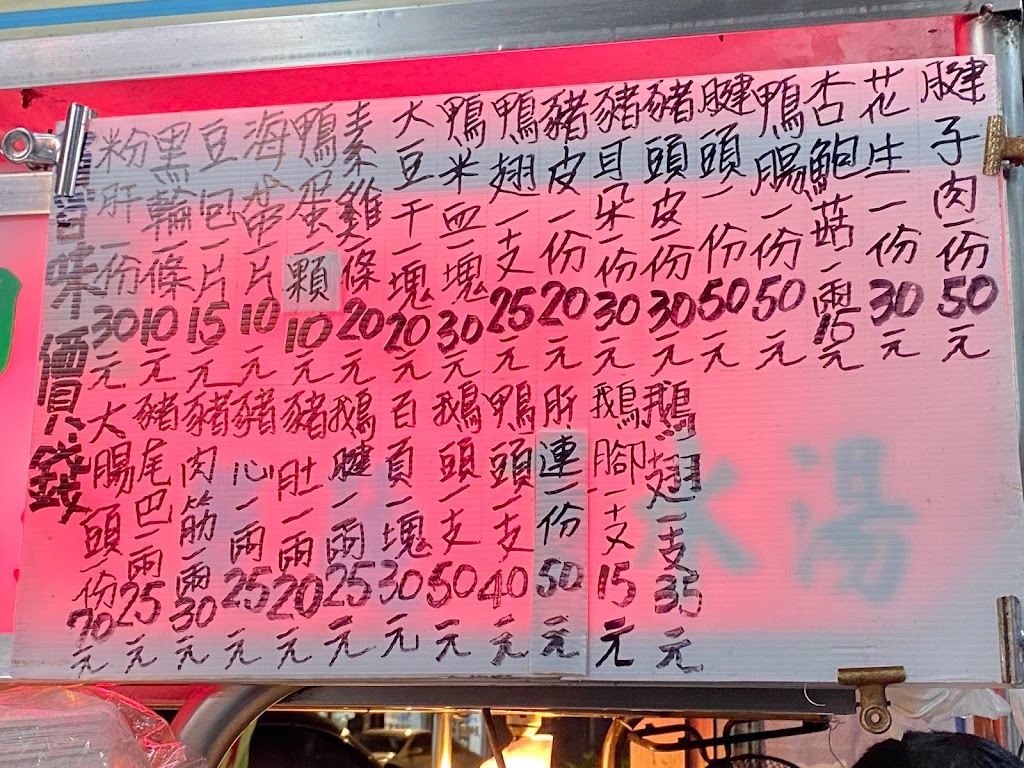 味價錢
粉肝一份30元
黑輪一條10元
豆回一片15元
海帶一片10元
鴨蛋一顆10元
素雞一條20元
大豆干一塊20元
鴨米血一塊30元
鴨翅一支25元
豬皮一份20元
豬耳朵一份30元
豬頭皮一份30元
腱頭一份50元
鴨腸一份50元
杏鮑菇一兩15元
花生一份30元
腱子肉一份50元
大腸頭一份70元
豬尾巴一兩25元
豬肉筋一兩30元
豬心一兩25元
豬肚一兩20元
鵝腱一兩25元
百頁一塊30元
鵝頭一支50元
鴨頭一支40元
肝連一份50元
鵝腳一支15元
鵝翅一支35元
水湯